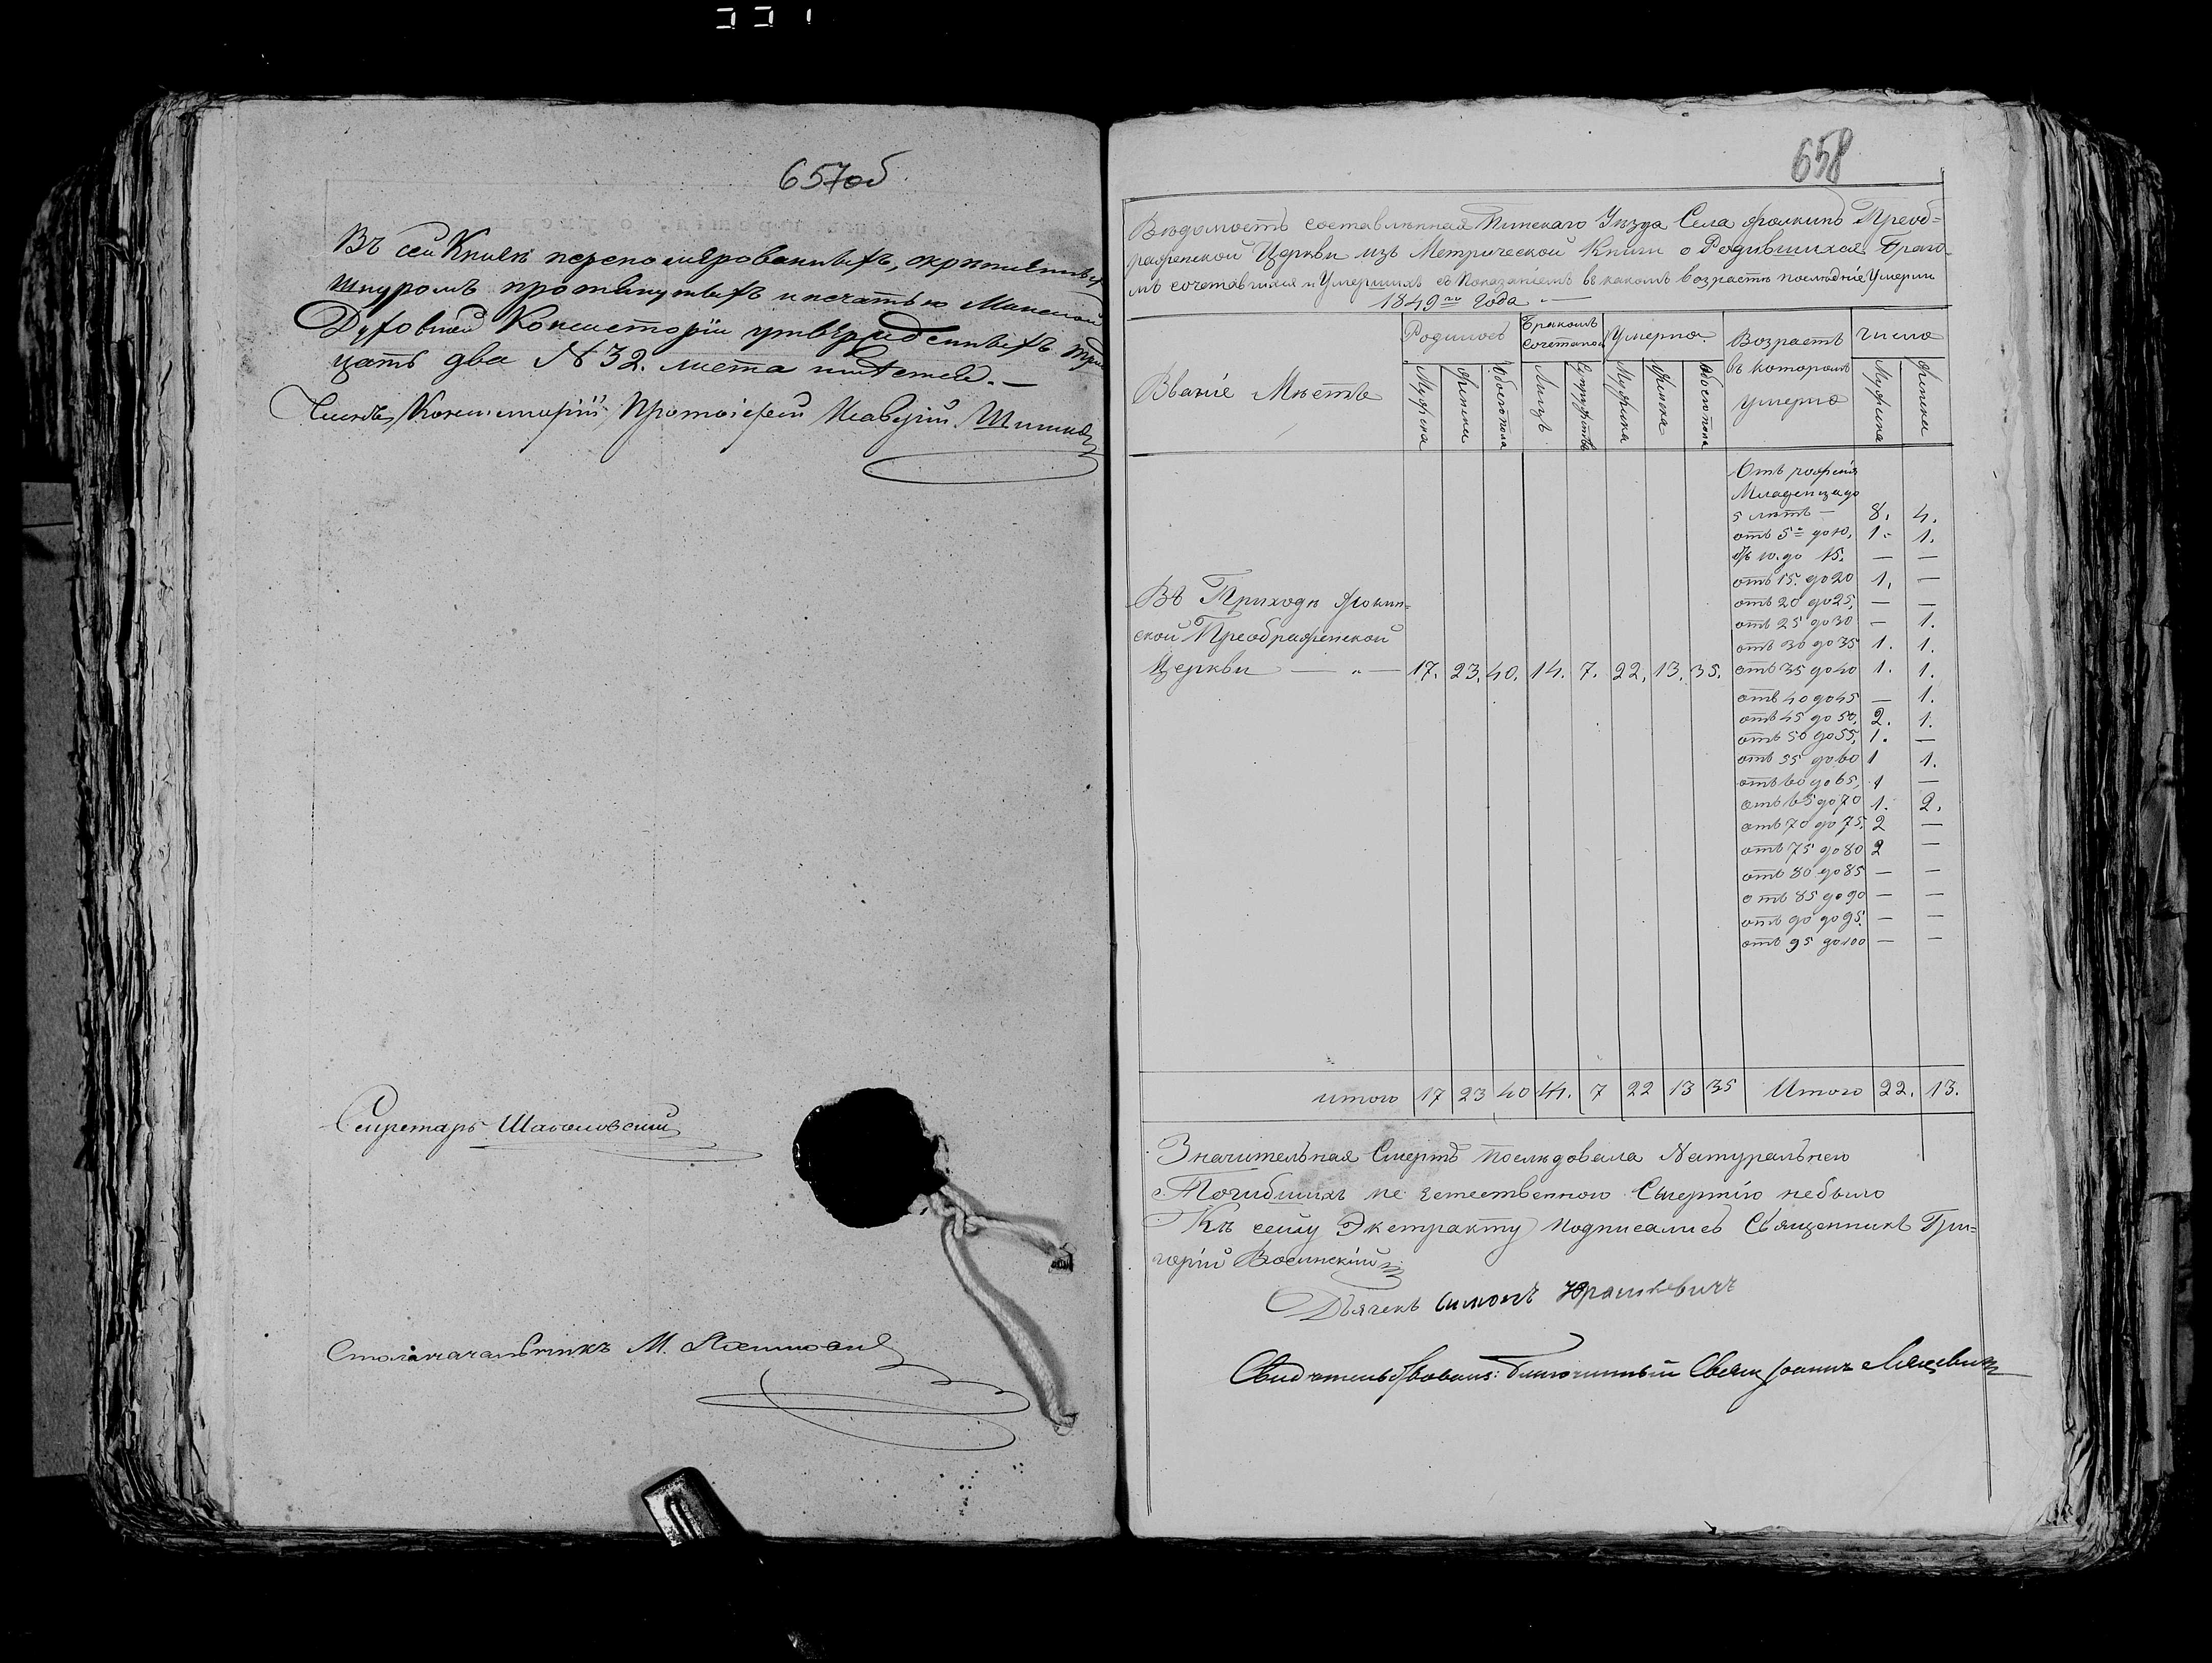 657об
Въ сей Книгѣ перепомѣрованныхъ, скрѣпленныхъ
шнуромъ протянутыхъ и печатью Минской
Духовной Консисторіи утвержденныхъ трид
цать два N 32. листа имѣется. —
Членъ Консисторіи Протоіерей
Секретарь
Столоначальникъ М.
658
Вѣдомость составленная Пинскаго Уѣзда Села Преоб=
раженской Церкви изъ Метрической Книги о Родившихся Брако-
мъ сочетавшихся и Умершихъ съ Показаніемъ въ какомъ возрастѣ послѣдніе Умерли
1849го года
Званіе Мѣстъ
Родилось
Бракомъ сочеталось
Умерло
Возрастъ въ которомъ умерло
Число
Мужска Женски Обоего пола Лицъ Супружествъ Мужска Женска Обоего пола Мужска Женски
Отъ рожденія
Младенца до
5 лѣтъ — 8. 4.
отъ 5 до 10. 1. 1.
отъ 10. до 15. — —
отъ 15. до 20 1. —
отъ 20 до 25. — —
отъ 25 до 30 — 1.
отъ 30 до 35 1. 1.
Въ Приходѣ
ской Преображенской
Церкви — „ — 17. 23. 40. 14. 7. 22. 13. 35. отъ 35 до 40 1. 1.
отъ 40 до 45 — 1.
отъ 45 до 50. 2. 1.
отъ 50 до 55. 1. —
отъ 55 до 60 1 1.
отъ 60 до 65. 1 —
отъ 65 до 70 1. 2.
отъ 70 до 75. 2 —
отъ 75 до 80 2 —
отъ 80 до 85 — —
отъ 85 до 90 — —
отъ 90 до 95. — —
отъ 95 до 100 — —
итого 17 23 40 14. 7 22 13 35 Итого 22. 13.
Значительная Смерть послѣдовала Натурально
Погибшихъ не естественною Смертію небыло
Къ сему Экстракту подписались Священникъ Гри=
горій
Дьячекъ Симонъ Юрашкевичъ
Свидѣтельствовалъ: Благочинный Свящ Іоаннъ